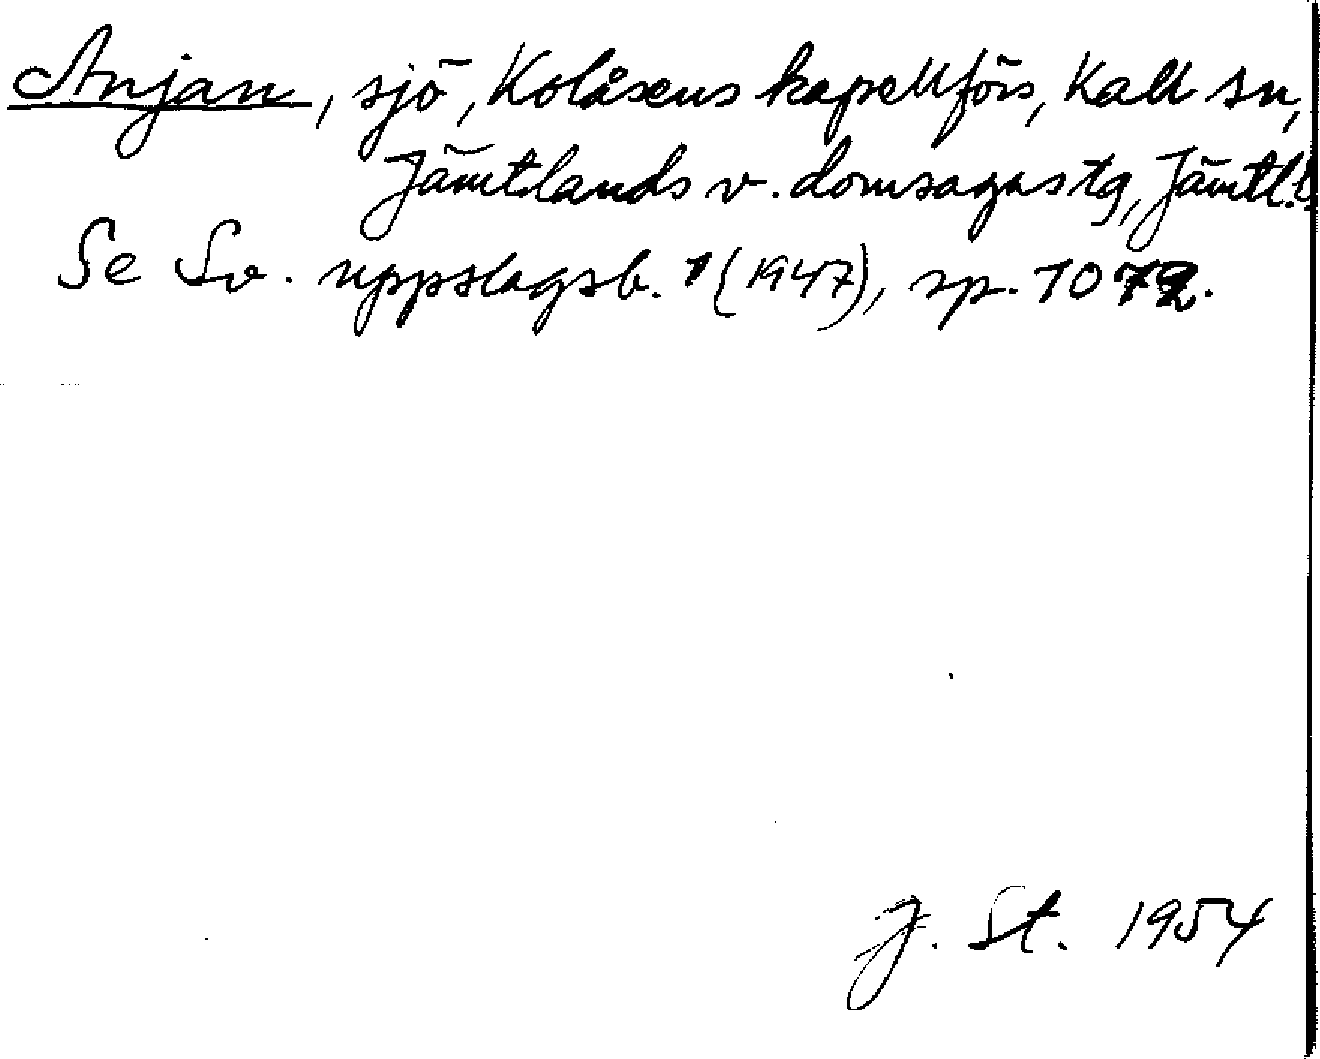 Anjan, sjö, Kolåsens kapellförs, Kall sn,
Jämtlands v. domsagas tg, Jämtl. l.
Se Sv. uppslagsb. 1 (1947), sp. 1072.
J. St. 1954